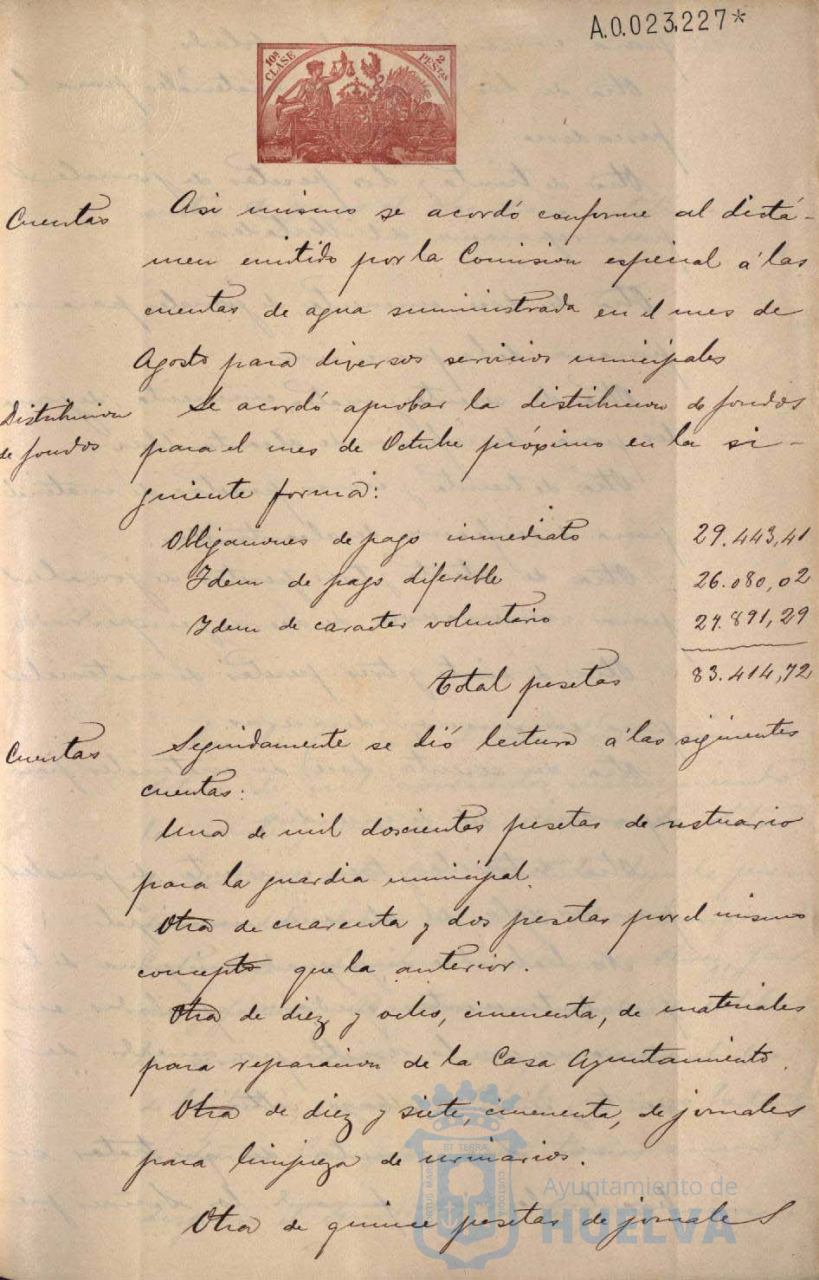 A.0.023,227*
10ª CLASE
2 PESETAS
Cuentas
Asi mismo se acordó conforme al dictá-
men emitido por la Comision especial á las
cuentas de agua suministrada en el mes de
Agosto para diversos servicios municipales
Distribucion
de fondos
Se acordó aprobar la distribucion de fondos
para el mes de Octubre próximo en la si-
guiente forma:
Obligaciones de pago inmediato 29.443,41
Idem de pago diferible 26.080,02
Idem de caracter voluntario 27.891,29
Total pesetas 83.414,72
Cuentas
Seguidamente se dió lectura á las siguientes
cuentas:
Una de mil doscientas pesetas de vestuario
para la guardia municipal.
Otra de cuarenta y dos pesetas por el mismo
concepto que la anterior.
Otra de diez y ocho, cincuenta, de materiales
para reparacion de la Casa Ayuntamiento.
Otra de diez y siete, cincuenta, de jornales
para limpieza de urinarios.
Otra de quince pesetas de jornales
Ayuntamiento de
HUELVA